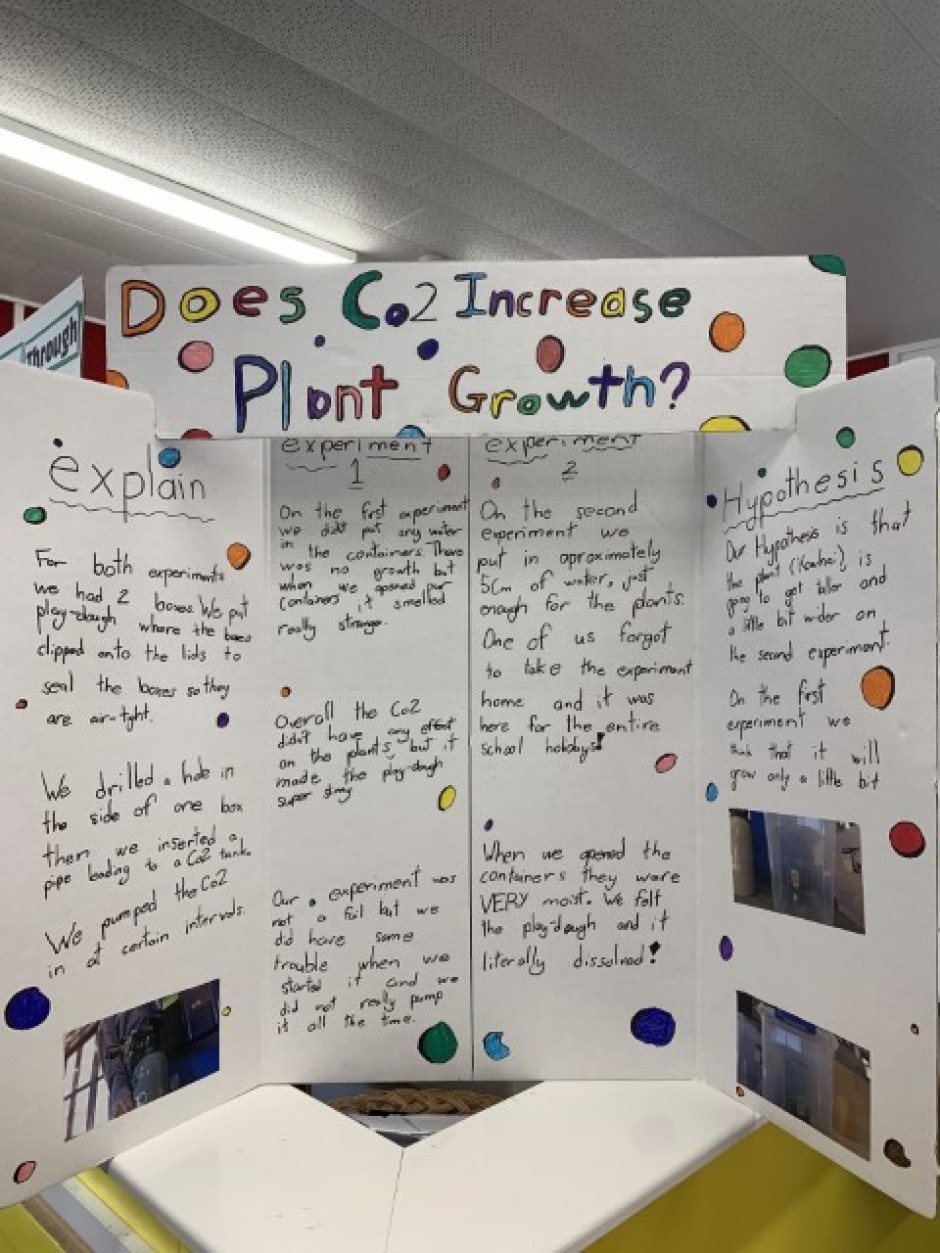 Through
Does Co2 Increase
Plant Growth?
explain
For both experiments
we had 2 boxes. We put
play-dough where the boxes
clipped onto the lids to
seal the boxes so they
are air-tight.
We drilled a hole in
the side of one box
then we inserted a
pipe leading to a Co2 tank.
We pumped the Co2
in at certain intervals.
experiment
1
On the first experiment
we didnt put any water
in the containers. There
was no growth but
when we opened our
containers it smelled
really strange.
Overall the Co2
didn't have any effect
on the plants, but it
made the play-dough
super slimy
Our experiment was
not a fail but we
did have some
trouble when we
started it and we
did not really pump
it all the time.
experiment
2
On the second
experiment we
put in aproximately
5cm of water, just
enough for the plants.
One of us forgot
to take the experiment
home and it was
here for the entire
school holidays!
When we opened the
containers they were
VERY moist. We felt
the play-dough and it
literally dissolved!
Hypothesis
Our Hypothesis is that
the plant (Kowhai) is
going to get taller and
a little bit wider on
the second experiment.
On the first
experiment we
think that it will
grow only a little bit